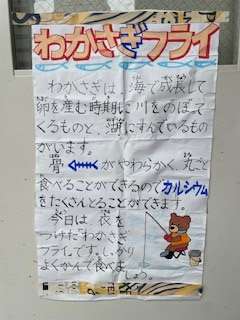 わかさぎフライ
わかさぎは、海で成長して
卵を産む時期に川をのぼって
くるものと、湖にすんでいるもの
がいます。
骨がやわらかく、丸ごと
食べることができるのでカルシウム
をたくさんとることができます。
今日は衣を
つけた「わかさぎ
フライ」です。しっかり
よくかんで食べま
しょう。